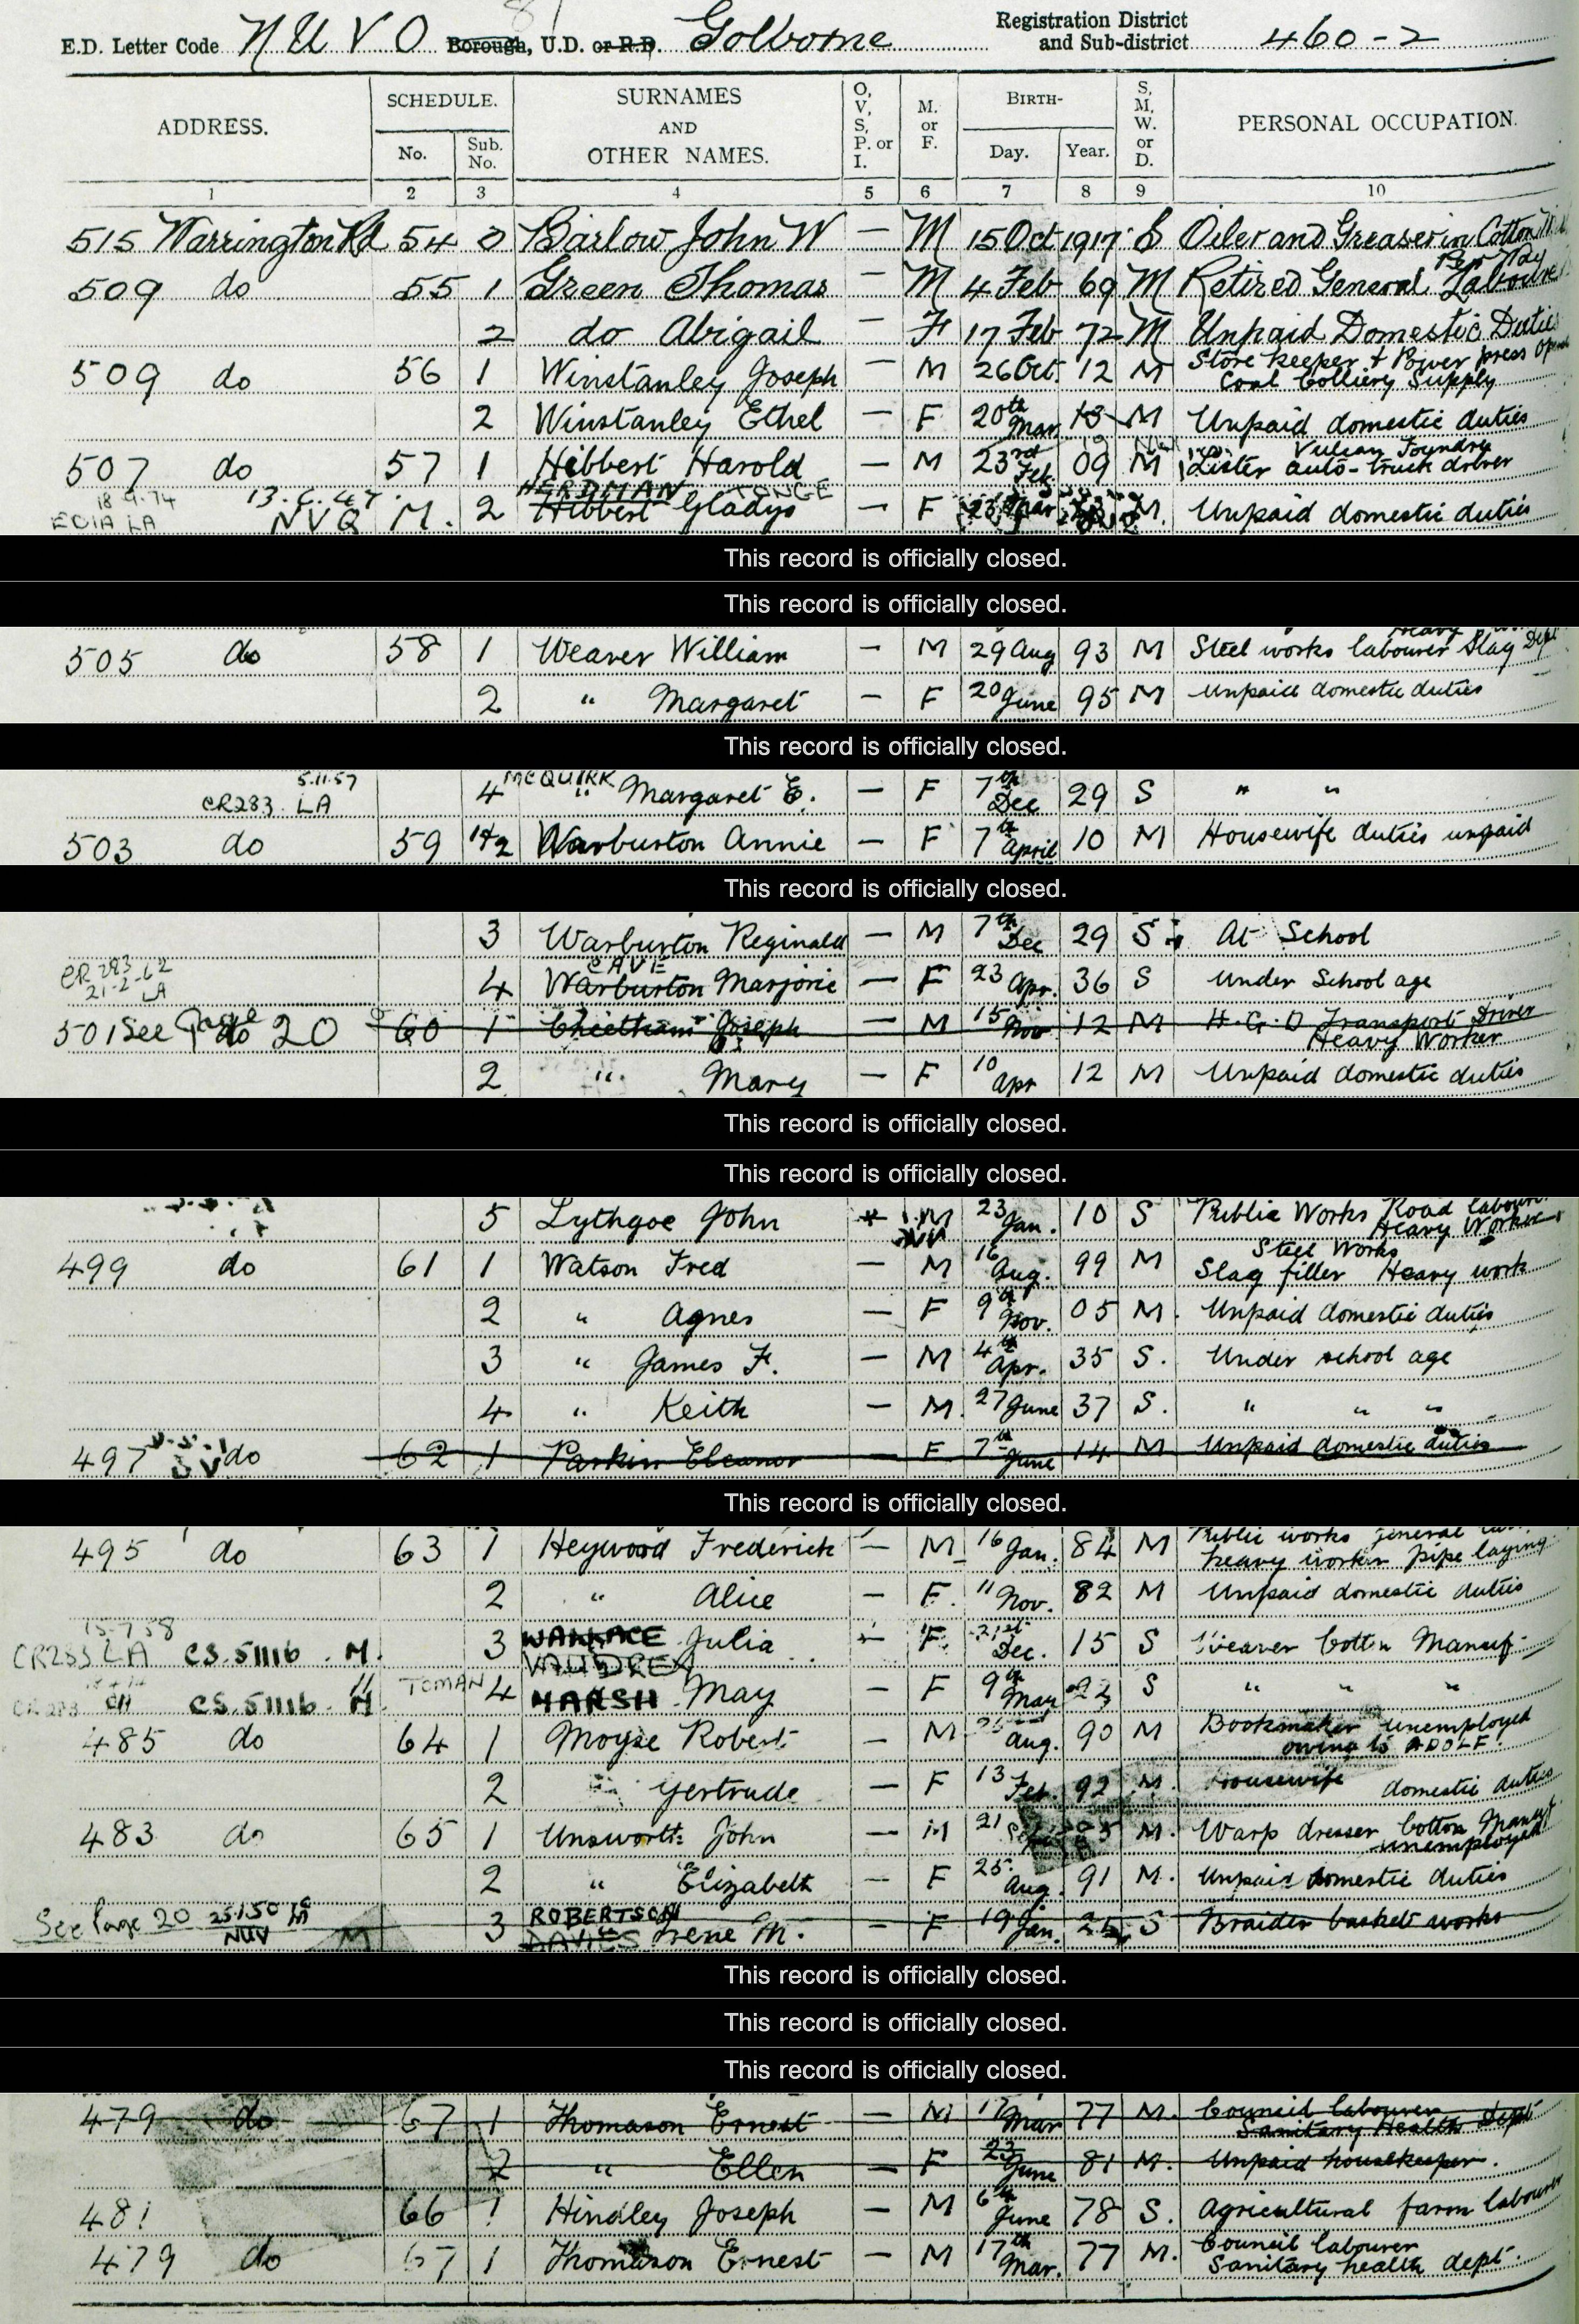 E.D. Letter Code NUVO Borough, U.D. or R.D. Golborne Registration District and Sub-district 460-2
ADDRESS. SCHEDULE. No. Sub. No. SURNAMES AND OTHER NAMES. O, V, S, P. or I. M. or F. BIRTH- Day. Year. S, M, W. or D. PERSONAL OCCUPATION.
1 2 3 4 5 6 7 8 9 10
515 Warrington Rd 54 3 Barlow John W — M 15 Oct 1917 S Oiler and Greaser in Cotton
509 do 55 1 Green Thomas — M 4 Feb 69 M Retired General Labourer
2 do Abigail — F 17 Feb 72 M Unpaid Domestic Duties
509 do 56 1 Winstanley Joseph — M 26 Oct. 12 M Store keeper + Power press
Coal Colliery Supply
2 Winstanley Ethel — F 20th Mar 13 M Unpaid domestic duties
507 do 57 1 Hibbert Harold — M 23rd Feb 09 M Vulcan Foundry
Lister auto-truck driver
HERDMAN TONGE
18.9.74 13.6.47
NVQ M. 2 Hibbert Gladys — F 23 Mar M. Unpaid domestic duties
This record is officially closed.
This record is officially closed.
505 do 58 1 Weaver William — M 29 Aug 93 M Steel works labourer Slag Dept
Heavy
2 " Margaret — F 20 June 95 M Unpaid domestic duties
This record is officially closed.
5.11.57 MCQUIRK
CR283 LA 4 " Margaret E. — F 7th Dec 29 S " "
503 do 59 1+2 Warburton Annie — F 7th April 10 M Housewife duties unpaid
This record is officially closed.
3 Warburton Reginald — M 7th Dec 29 S At School
CAVE
CR 283 21-2-62 LA 4 Warburton Marjorie — F 23 Apr. 36 S Under School age
501 See Page do 20 60 1 Cheetham Joseph — M 15 Nov 12 M H.G.O Transport Driver
Heavy Worker
2 " Mary — F 10 Apr 12 M Unpaid domestic duties
This record is officially closed.
This record is officially closed.
5 Lythgoe John M 23 Jan. 10 S Public Works Road labourer
Heavy Worker
499 do 61 1 Watson Fred — M 16 Aug. 99 M Steel Works
Slag filler Heavy work
2 " Agnes — F 9th Nov. 05 M. Unpaid domestic duties
3 " James F. — M 4th Apr. 35 S. Under school age
4 " Keith — M. 27 June 37 S. " " "
497 do 62 1 Parkin Eleanor — F 7th June 14 M Unpaid domestic duties
This record is officially closed.
495 do 63 1 Heywood Frederick — M 16 Jan. 84 M Public works general
heavy worker pipe laying
2 " Alice — F. 11 Nov. 82 M Unpaid domestic duties
15-7-58
CR283 LA CS.51116 . M. 3 WALLACE Julia F 21st Dec. 15 S Weaver Cotton Manuf-
VAUDREY
CS.51116 . M TOMAN 4 MARSH May — F 9th May S " " "
485 do 64 1 Moyse Robert — M Aug. 90 M Bookmaker unemployed
owing to ADOLF.
2 " Gertrude — F 13 Feb. 92 M. Housewife domestic duties
483 do 65 1 Unsworth John — M 21 M. Warp dresser Cotton Manuf
unemployed
2 " Elizabeth — F 25. Aug. 91 M. Unpaid domestic duties
ROBERTSON
See Page 20 25.1.50 NUV M 3 DAVIES Irene M. — F 19 Jan. S Braider basket works
This record is officially closed.
This record is officially closed.
This record is officially closed.
479 do 67 1 Thomason Ernest — M 17 Mar 77 M. Council labourer
Sanitary Health Dept
2 " Ellen — F 23 June 81 M. Unpaid housekeeper.
481 66 1 Hindley Joseph — M 6th June 78 S. Agricultural farm labourer
479 do 67 1 Thomason Ernest — M 17th Mar. 77 M. Council labourer
Sanitary health dept.